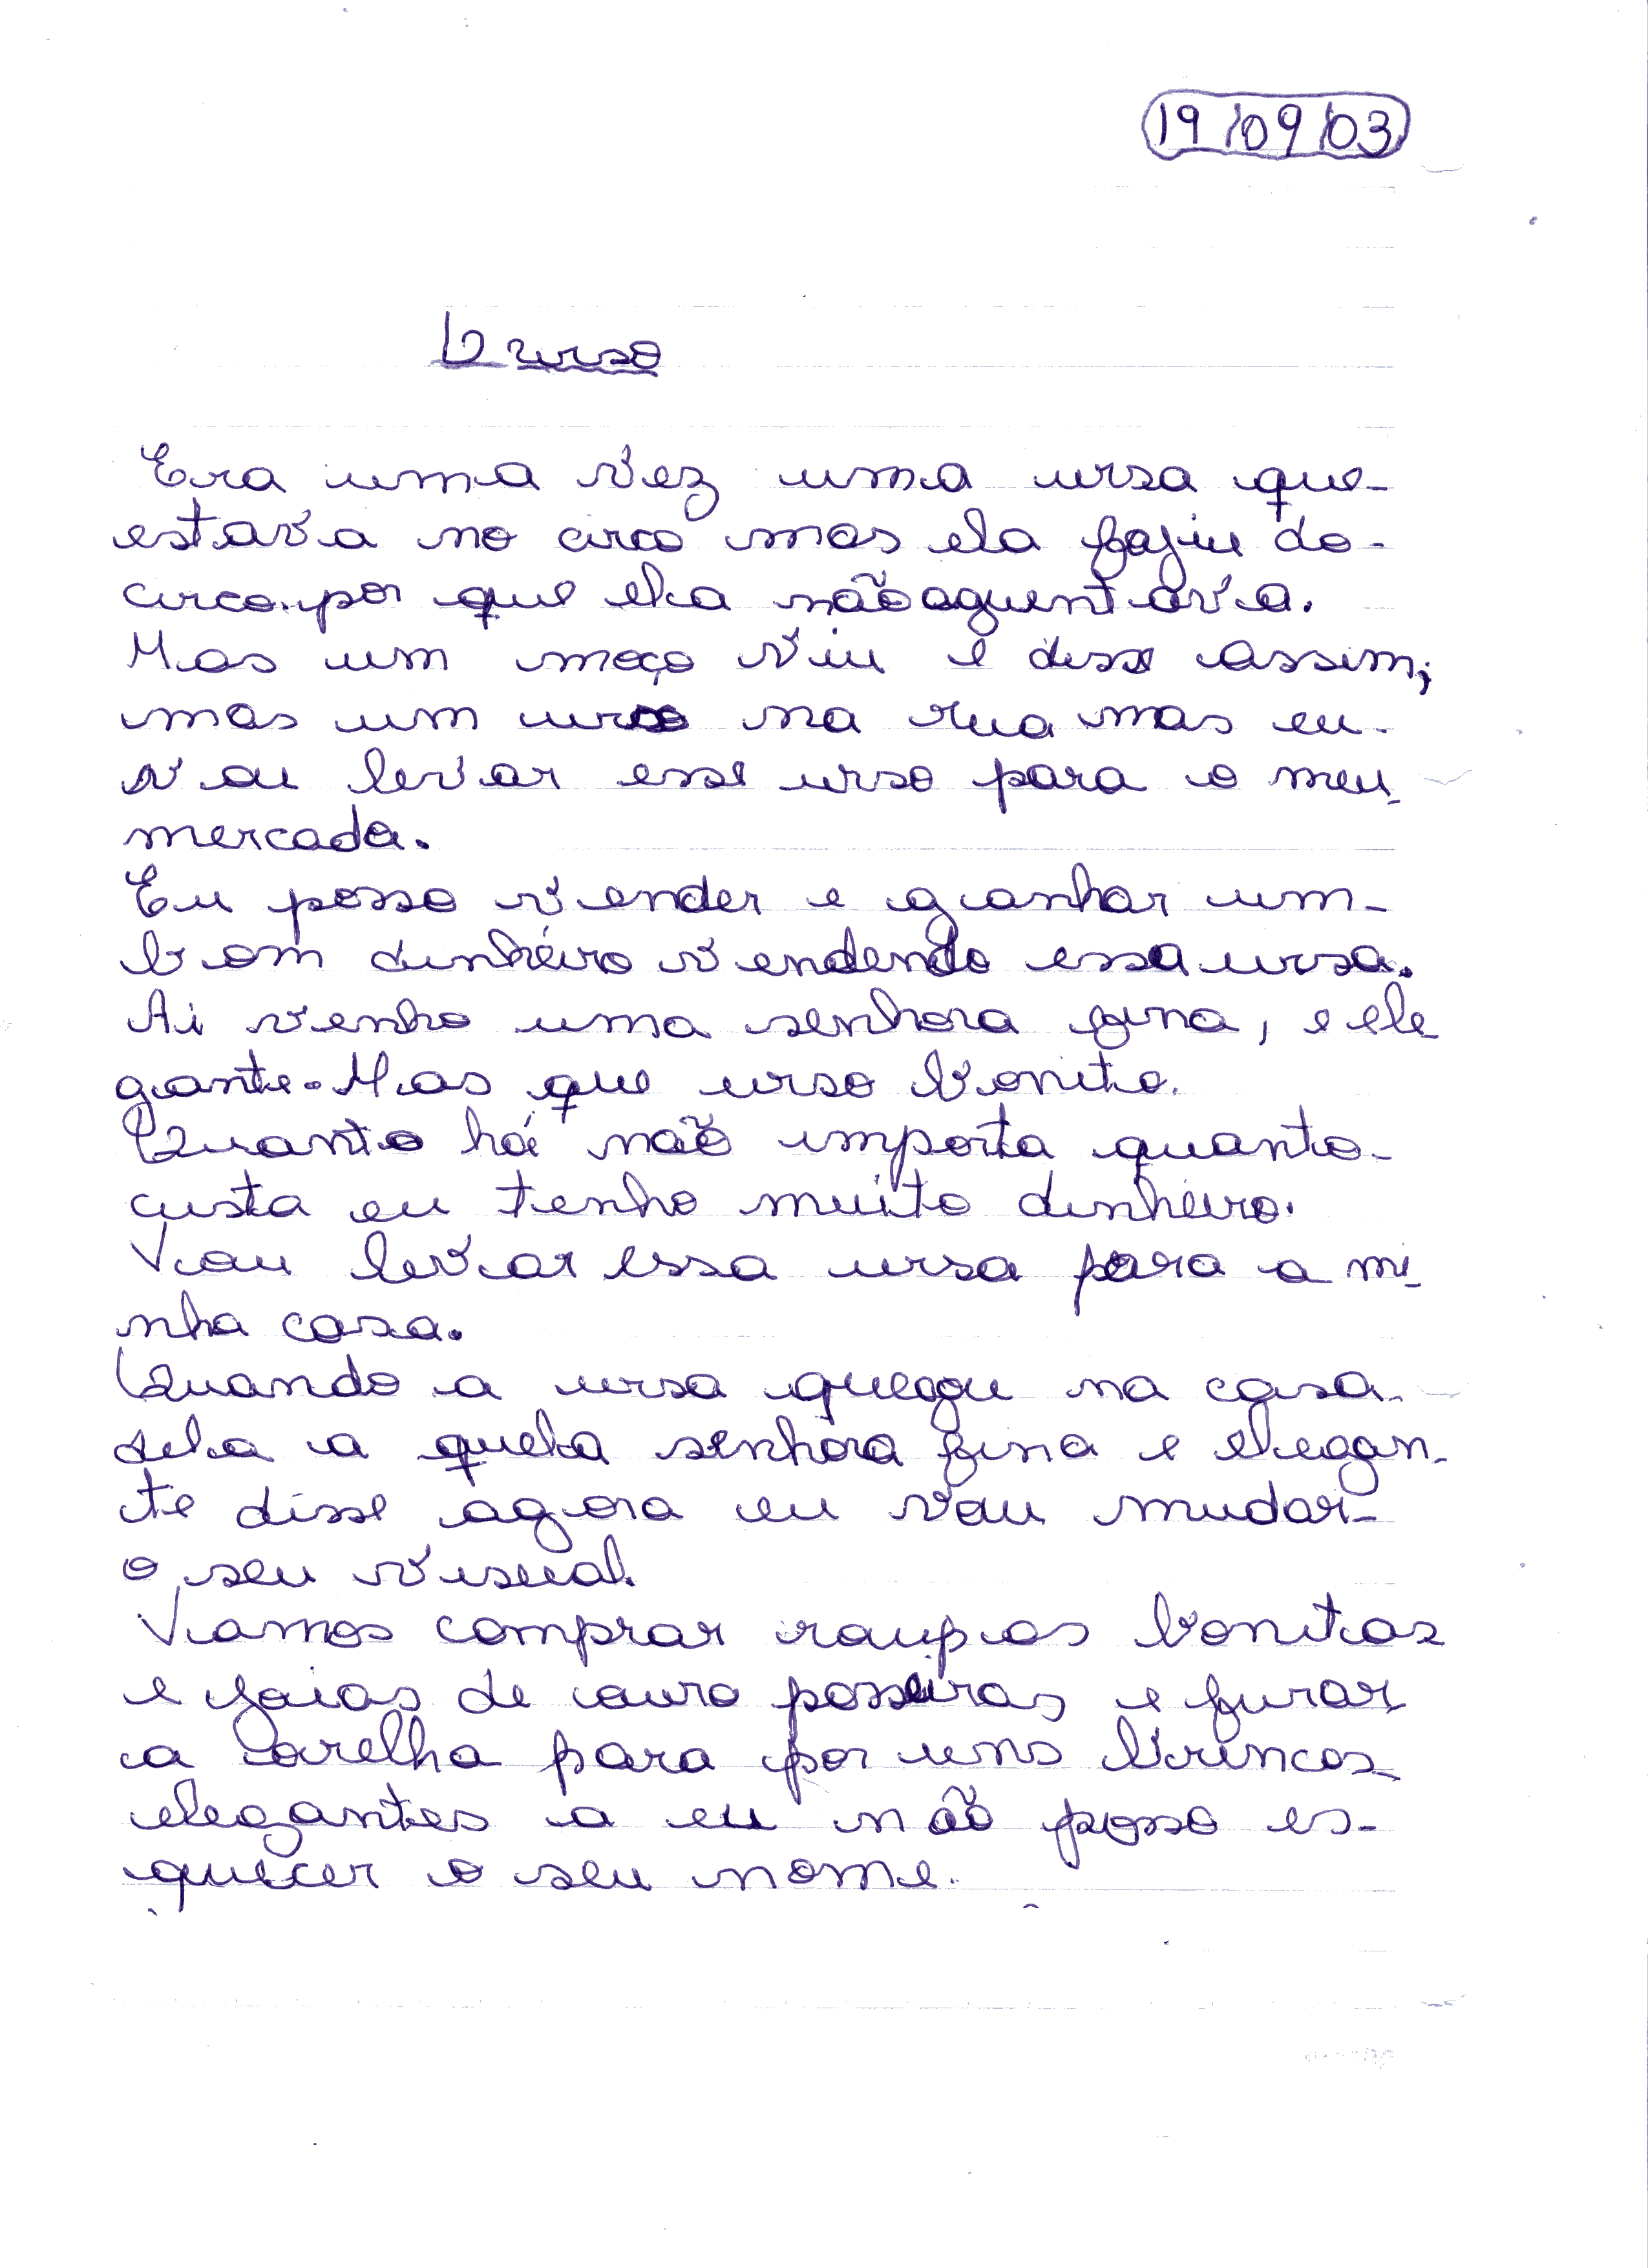 19/09/03
O urso
Era uma vez uma ursa que-
estava no circo mas ela fajiu do-
circo. por que ela não aguentava.
Mas um moço viu e disse assim;
mas um urso na rua mas eu-
vou levar esse urso para o meu-
mercado.
Eu posso vender e ganhar um-
bom dinheiro vendendo essa ursa.
Ai venho uma senhora fina, e ele
gante. Mas que urso bonito.
Quanto há não importa quanto-
custa eu tenho muito dinheiro.
Vou levar essa ursa para a mi-
nha casa.
Quando a ursa quegou na casa-
dela a quela senhora fina e elegan-
te disse agora eu vou mudar-
o seu visual.
Vamos comprar roupas bonitas
e joias de ouro posseiras e furar
a orelha para por uns brincos-
elegantes a eu não posso es-
quecer o seu nome.